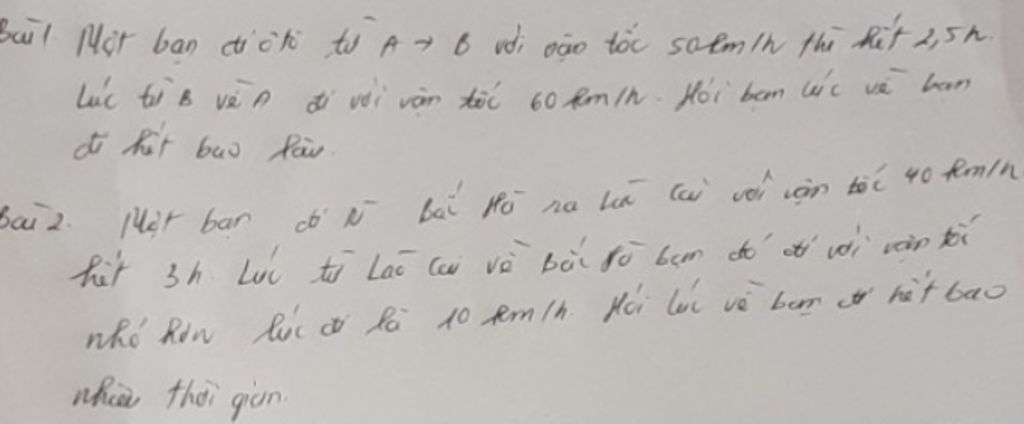 Bài 1 Một bạn đi ôtô từ A → B với vận tốc 50km/h thì hết 2,5h.
Lúc từ B về A đi với vận tốc 60 km/h. Hỏi bạn lúc về bạn
đi hết bao lâu.
Bài 2. Một bạn đi từ Bắc Hà ra Lào Cai với vận tốc 40 km/h
hết 3h. Lúc từ Lào Cai về Bắc Hà bạn đó đi với vận tốc
nhỏ hơn lúc đi là 10 km/h. Hỏi lúc về bạn đi hết bao
nhiêu thời gian.